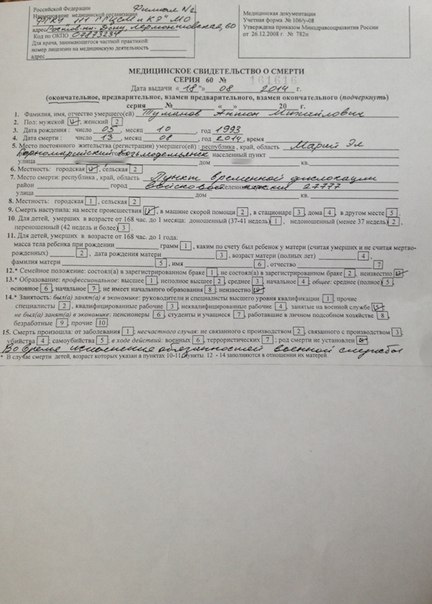 Российской Федерации
Филиал №2
Наименование медицинской организации
ФГКУ "111 ГГЦСМ и КЭ" МО
адрес г. Ростов-на-Дону, Лермонтовская, 60
Код по ОКПО
Для врача, занимающегося частной практикой:
номер лицензии на медицинскую деятельность
адрес
Медицинская документация
Учетная форма № 106/у-08
Утверждена приказом Минздравсоцразвития России
от 26.12.2008 г. № 782н
МЕДИЦИНСКОЕ СВИДЕТЕЛЬСТВО О СМЕРТИ
СЕРИЯ 60 № 161616
Дата выдачи «18» 08 2014 г.
(окончательное, предварительное, взамен предварительного, взамен окончательного (подчеркнуть)
серия № « » 20 г.
1. Фамилия, имя, отчество умершего(ей) Туманов Антон Михайлович
2. Пол: мужской 1, женский 2
3. Дата рождения: число 05 месяц 10, год 1993
4. Дата смерти: число 13 месяц 08 год 2014, время
5. Место постоянного жительства (регистрации) умершего(ей) республика, край, область Марий Эл
Горномарийский Козьмодемьянск населенный пункт
улица дом кв.
6. Местность: городская, сельская 2
7. Место смерти: республика, край, область Пункт временной дислокации
район город войсковой части 27777
улица дом кв.
8. Местность: городская 1, сельская 2
9. Смерть наступила: на месте происшествия, в машине скорой помощи 2, в стационаре 3, дома 4, в другом месте 5
10. Для детей, умерших в возрасте от 168 час. до 1 месяца: доношенный (37-41 недель) 1, недоношенный (менее 37 недель) 2,
переношенный (42 недель и более) 3
11. Для детей, умерших в возрасте от 168 час. до 1 года:
масса тела ребенка при рождении грамм 1, каким по счету был ребенок у матери (считая умерших и не считая мертво-
рожденных) 2, дата рождения матери 3, возраст матери (полных лет) 4,
фамилия матери 5, имя 6, отчество 7
12.* Семейное положение: состоял(а) в зарегистрированном браке 1, не состоял(а) в зарегистрированном браке 2, неизвестно
13.* Образование: профессиональное: высшее 1, неполное высшее 2, среднее 3, начальное 4; общее: среднее (полное) 5,
основное 6, начальное 7; не имеет начального образования 8; неизвестно
14.* Занятость: был(а) занят(а) в экономике: руководители и специалисты высшего уровня квалификации 1, прочие
специалисты 2, квалифицированные рабочие 3, неквалифицированные рабочие 4, занятые на военной службе
не был(а) занят(а) в экономике: пенсионеры 6, студенты и учащиеся 7, работавшие в личном подсобном хозяйстве 8,
безработные 9, прочие 10
15. Смерть произошла: от заболевания 1; несчастного случая: не связанного с производством 2, связанного с производством 3,
убийства 4; самоубийства 5; в ходе действий: военных 6, террористических 7; род смерти не установлен
Во время исполнения обязанностей военной службы
* В случае смерти детей, возраст которых указан в пунктах 10-11, пункты 12 - 14 заполняются в отношении их матерей.